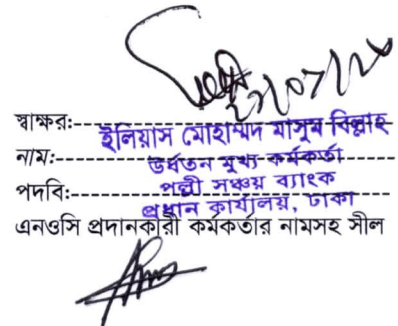 স্বাক্ষর:
ইলিয়াস মোহাম্মদ মাসুম বিল্লাহ
নাম:
উর্ধতন মুখ্য কর্মকর্তা
পদবি:
পল্লী সঞ্চয় ব্যাংক
প্রধান কার্যালয়, ঢাকা
এনওসি প্রদানকারী কর্মকর্তার নামসহ সীল